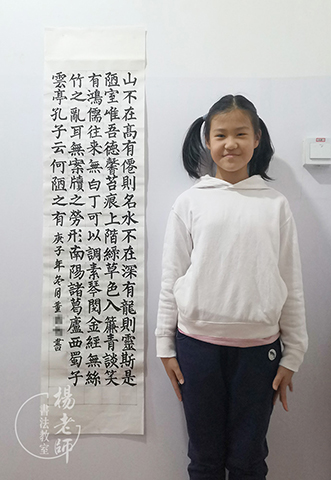 山不在高有僊則名水不在深有龍則靈斯是
陋室惟吾德馨苔痕上階綠草色入簾青談笑
有鴻儒往來無白丁可以調素琴閱金經無絲
竹之亂耳無案牘之勞形南陽諸葛廬西蜀子
雲亭孔子云何陋之有 庚子年冬月董書
楊老師
書法教室